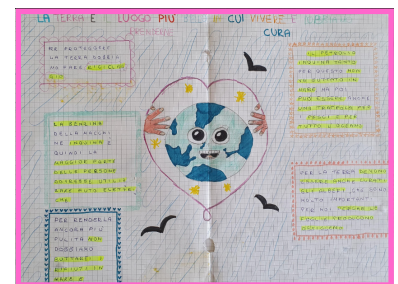 LA TERRA E LUOGO PIU' IN CUI VIVERE E
CURA
PER PROTEGGERE
LA TERRA
FARE
LA BENZINA
DELLA MACCHI-
NE INQUINA E
QUINDI LA
MAGGIOR PARTE
DELLE PERSONE
UTILIZ-
ZARE AUTO ELETTRI-
CHE
PER RENDERLA
ANCORA PIÙ
PULITA NON
DOBBIAMO
BUTTARE I
RIFIUTI IN
MARE E
IL PETROLIO
INQUINA TANTO
PER QUESTO NON
IN
MARE
PUÒ ESSERE ANCHE
UNA TRAPPOLA PER
I PESCI E PER
TUTTO L'OCEANO
PER LA TERRA DEVONO
ESSERE ANCHE CURATI
GLI ALBERI, CHE SONO
MOLTO IMPORTANTI
PER NOI PERCHÈ LE
FOGLIE PRODUCONO
OSSIGENO